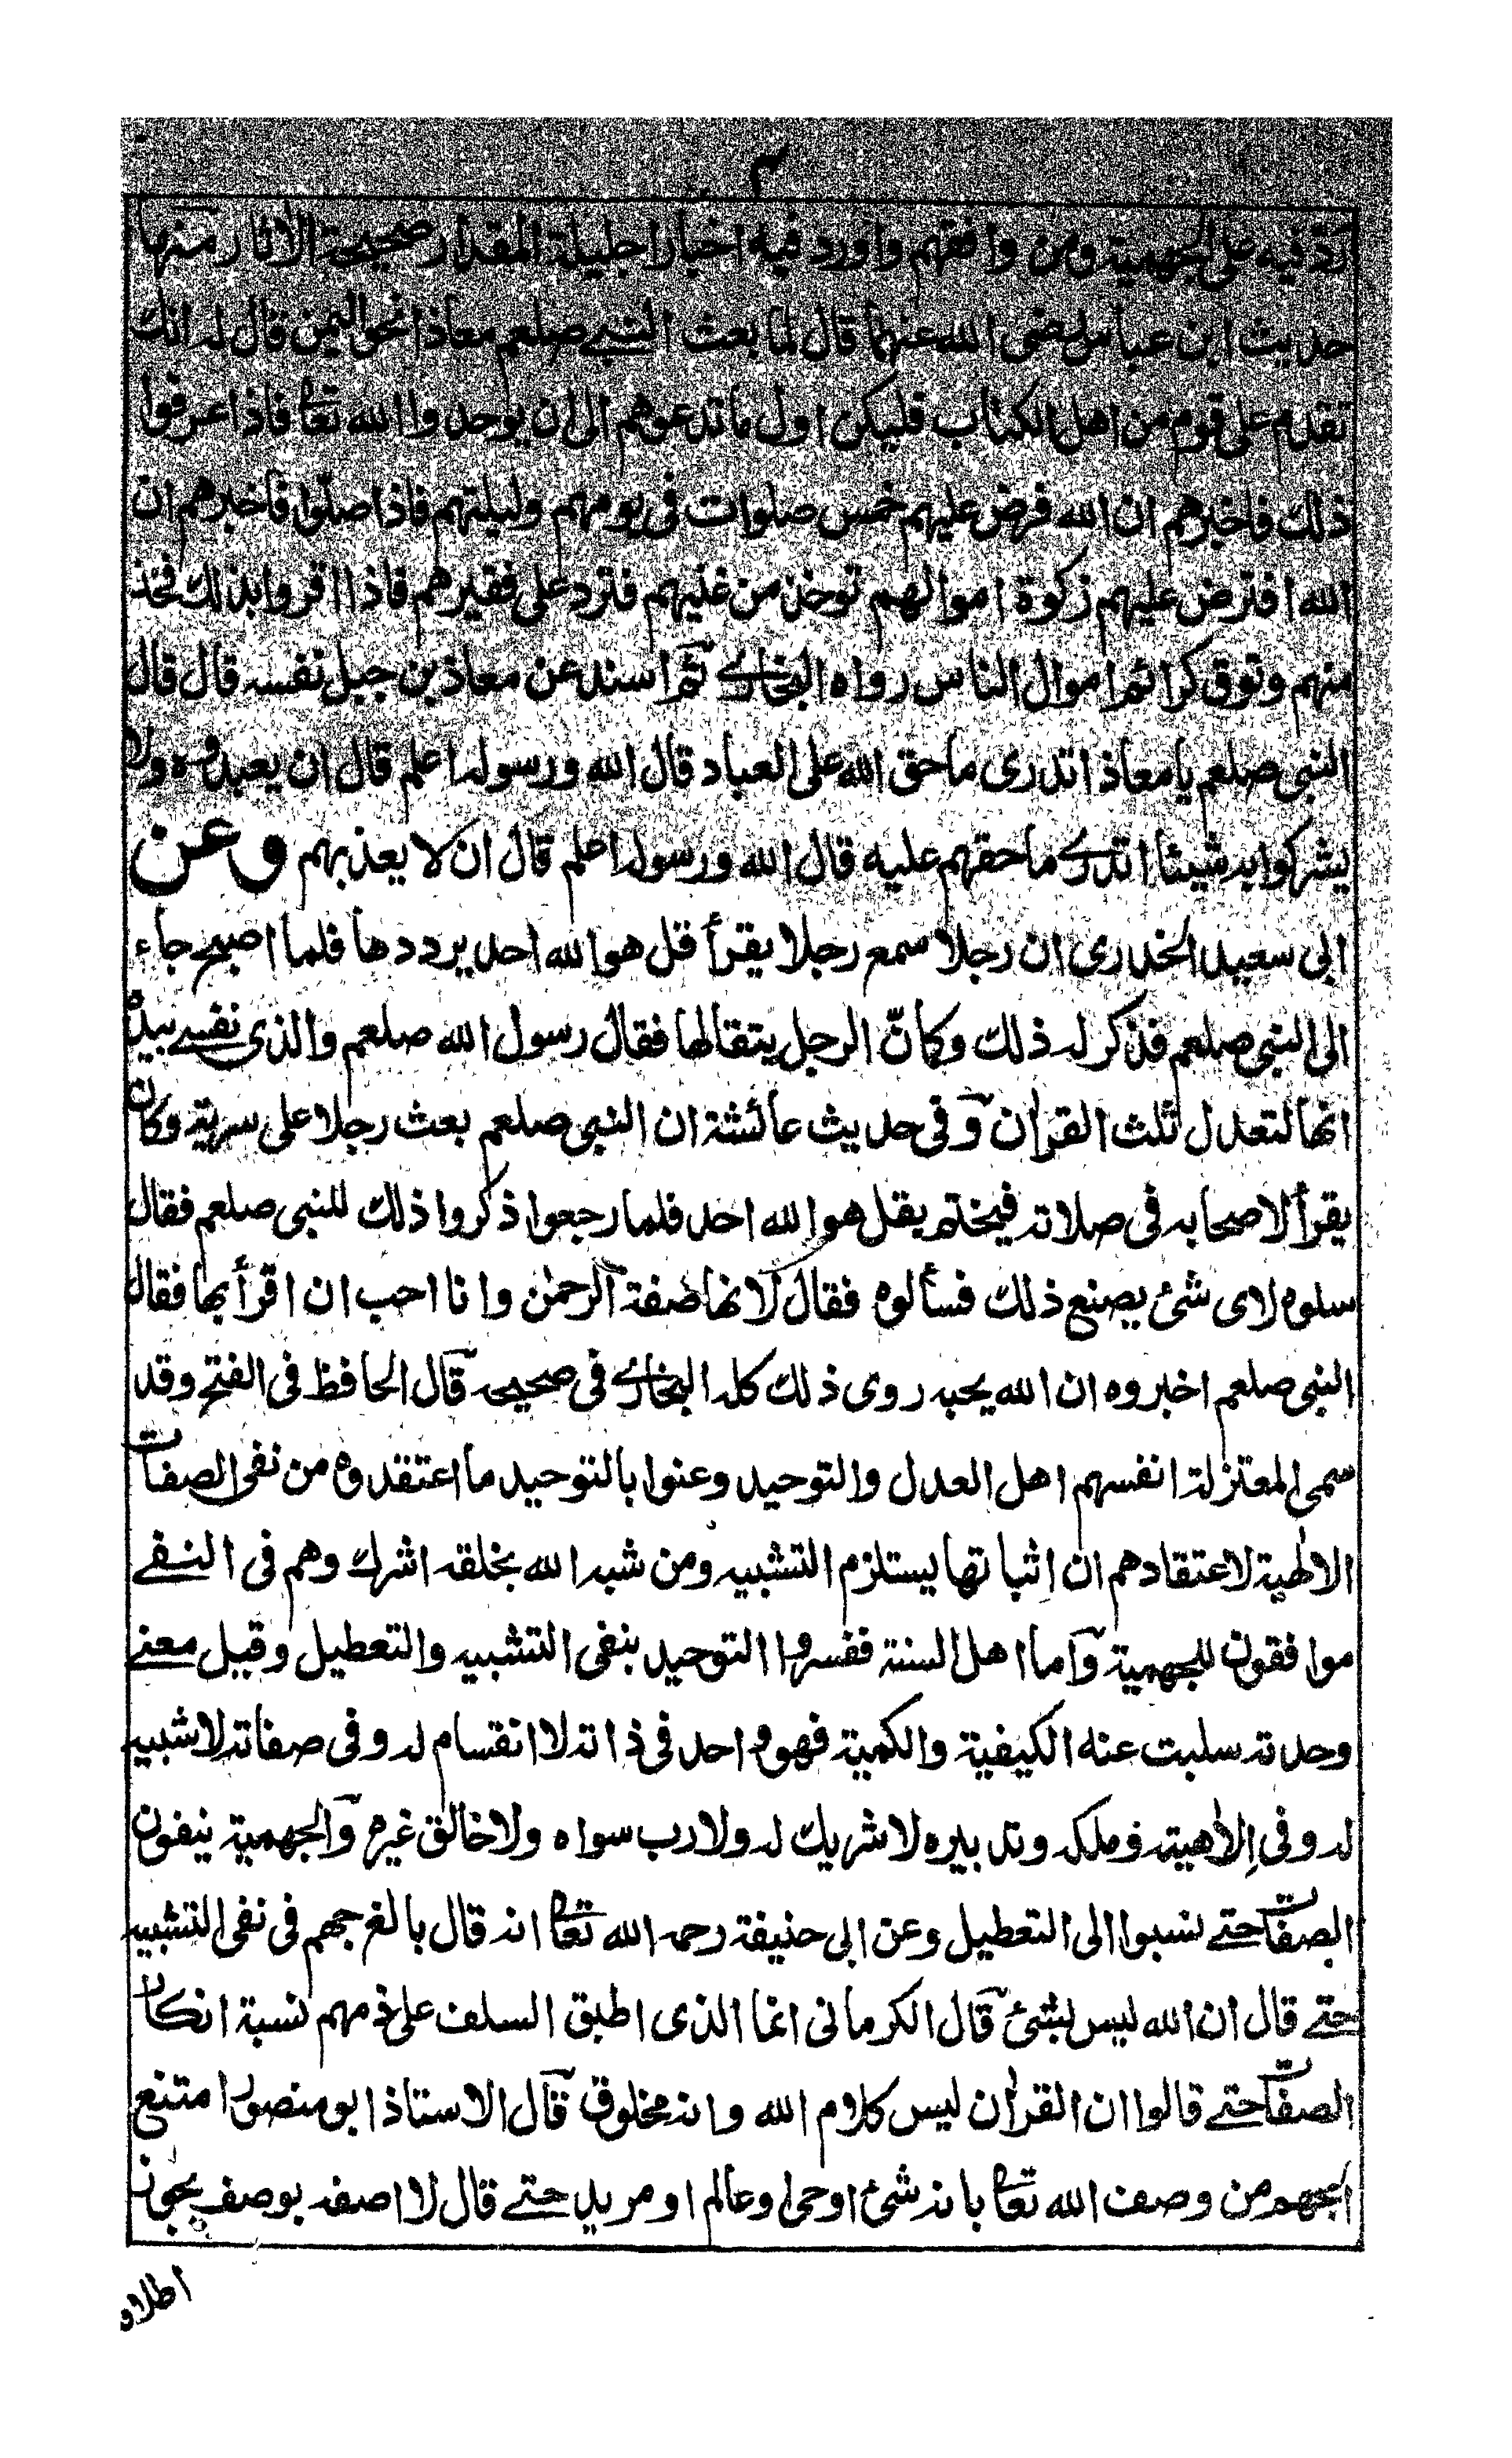 ٣
رد فيه على الجهمية ومن وافقهم واورد فيه اخبارا جليلة المقدار صحيحة الاثار منها
حديث ابن عباس رضى الله عنهما قال لما بعث النبي صلعم معاذا نحو اليمن قال له انك
تقدم على قوم من اهل الكتاب فليكن اول ما تدعوهم الى ان يوحدوا الله تعا فاذا عرفوا
ذلك فاخبرهم ان الله فرض عليهم خمس صلوات فى يومهم وليلتهم فاذا صلّوا فاخبرهم ان
الله افترض عليهم زكوة اموالهم توخذ من غنيهم فترد على فقيرهم فاذا اقروا بذلك فخذ
منهم وتوق كرائم اموال الناس رواه البخاري ثم اسند عن معاذ بن جبل نفسه قال قال
النبى صلعم يا معاذ اتدرى ما حق الله على العباد قال الله ورسوله اعلم قال ان يعبدوه ولا
يشركوا به شيئا اتدري ما حقهم عليه قال الله ورسوله اعلم قال ان لا يعذبهم وعن
ابى سعيد الخدرى ان رجلا سمع رجلا يقرأ قل هو الله احد يرددها فلما اصبح جاء
الى النبى صلعم فذكر له ذلك وكانّ الرجل يتقالها فقال رسول الله صلعم والذى نفسي بيده
انها لتعدل ثلث القرأن وفى حديث عائشة ان النبى صلعم بعث رجلا على سرية وكان
يقرأ لاصحابه فى صلاته فيختم بقل هو الله احد فلما رجعوا ذكروا ذلك للنبى صلعم فقال
سلوه لاى شئ يصنع ذلك فسألوه فقال لانها صفة الرحمٰن وانا احب ان اقرأ بها فقال
النبى صلعم اخبروه ان الله يحبه روى ذلك كله البخاري فى صحيحه قال الحافظ فى الفتح وقد
سمى المعتزلة انفسهم اهل العدل والتوحيد وعنوا بالتوحيد ما اعتقدوه من نفى الصفات
الالٰهية لاعتقادهم ان اثباتها يستلزم التشبيه ومن شبه الله بخلقه اشرك وهم فى النفي
موافقون للجهمية واما اهل السنة ففسروا التوحيد بنفى التشبيه والتعطيل وقيل معنے
وحدته سلبت عنه الكيفية والكمية فهو واحد فى ذاته لا انقسام له وفى صفاته لا شبيه
له وفى إلاهيته وملكه وتدبيره لا شريك له ولا رب سواه ولا خالق غيره والجهمية ينفون
الصفات حتے نسبوا الى التعطيل وعن ابى حنيفة رحمه الله تعا انه قال بالغ جهم فى نفى التشبيه
حتے قال ان الله ليس بشئ قال الكرمانى انما الذى اطبق السلف على ذمهم نسبة انكار
الصفات حتے قالوا ان القرأن ليس كلام الله وانه مخلوق قال الاستاذ ابو منصور امتنع
الجهم من وصف الله تعا بانه شئ او حى او عالم او مريد حتے قال لا اصفه بوصف يجوز
اطلاق